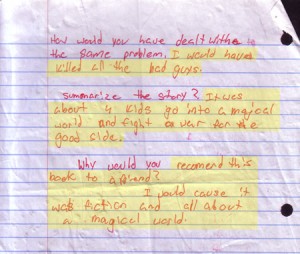 How would you have dealt with
the same problem. I would have
killed all the bad guys.
summarize the story? It was
about 4 kids go into a magical
world and fight a war for the
good side.
Why would you recomend this
book to a friend?
I would cause it
was fiction and all about
a magical world.